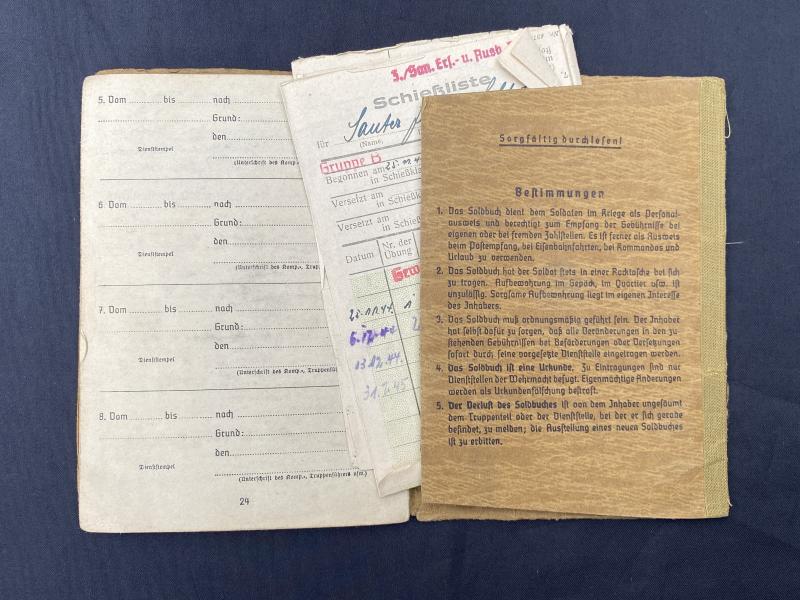 5. Vom ......... bis ......... nach .........
Grund: .........
den .........
Dienststempel
(Unterschrift des Komp.-, Truppenführers usw.)
6. Vom ......... bis ......... nach .........
Grund: .........
den .........
Dienststempel
(Unterschrift des Komp.-, Truppenf
7. Vom ......... bis ......... nach .........
Grund: .........
den .........
Dienststempel
(Unterschrift des Komp.-, Truppenführers
8. Vom ......... bis ......... nach .........
Grund: .........
den .........
Dienststempel
(Unterschrift des Komp.-, Truppenführers usw.)
24
3./San. Ers.- u. Ausb.
Schießliste
für Sauter
(Name,
Gruppe B
Begonnen am 25.11.4
in Schießkl
Versetzt am
in Schießkl
Versetzt am
in Schießk
Datum
Nr. der
Übung
Gew
25.11.44. 1
6.12.44
13.12.44.
31.1.45
Sorgfältig durchlesen!
Bestimmungen
1. Das Soldbuch dient dem Soldaten im Kriege als Personal-
ausweis und berechtigt zum Empfang der Gebührnisse bei
eigenen oder bei fremden Zahlstellen. Es ist ferner als Ausweis
beim Postempfang, bei Eisenbahnfahrten, bei Kommandos und
Urlaub zu verwenden.
2. Das Soldbuch hat der Soldat stets in einer Rocktasche bei sich
zu tragen. Aufbewahrung im Gepäck, im Quartier usw. ist
unzulässig. Sorgsame Aufbewahrung liegt im eigenen Interesse
des Inhabers.
3. Das Soldbuch muß ordnungsmäßig geführt sein. Der Inhaber
hat selbst dafür zu sorgen, daß alle Veränderungen in den zu
stehenden Gebührnissen bei Beförderungen oder Versetzungen
sofort durch seine vorgesetzte Dienststelle eingetragen werden.
4. Das Soldbuch ist eine Urkunde. Zu Eintragungen sind nur
Dienststellen der Wehrmacht befugt. Eigenmächtige Änderungen
werden als Urkundenfälschung bestraft.
5. Der Verlust des Soldbuches ist von dem Inhaber ungesäumt
dem Truppenteil oder der Dienststelle, bei der er sich gerade
befindet, zu melden; die Ausstellung eines neuen Soldbuches
ist zu erbitten.